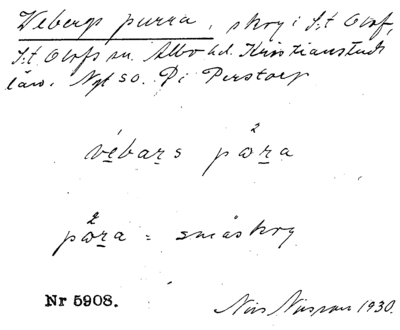 Webergs purra, skog i S:t Olof,
S:t Olofs sn. Albo hd. Kristianstads
län. Nyl so. Pi Perstorp
vébars på2ra
på2ra = småskog
Nr 5908. Nils 1930.